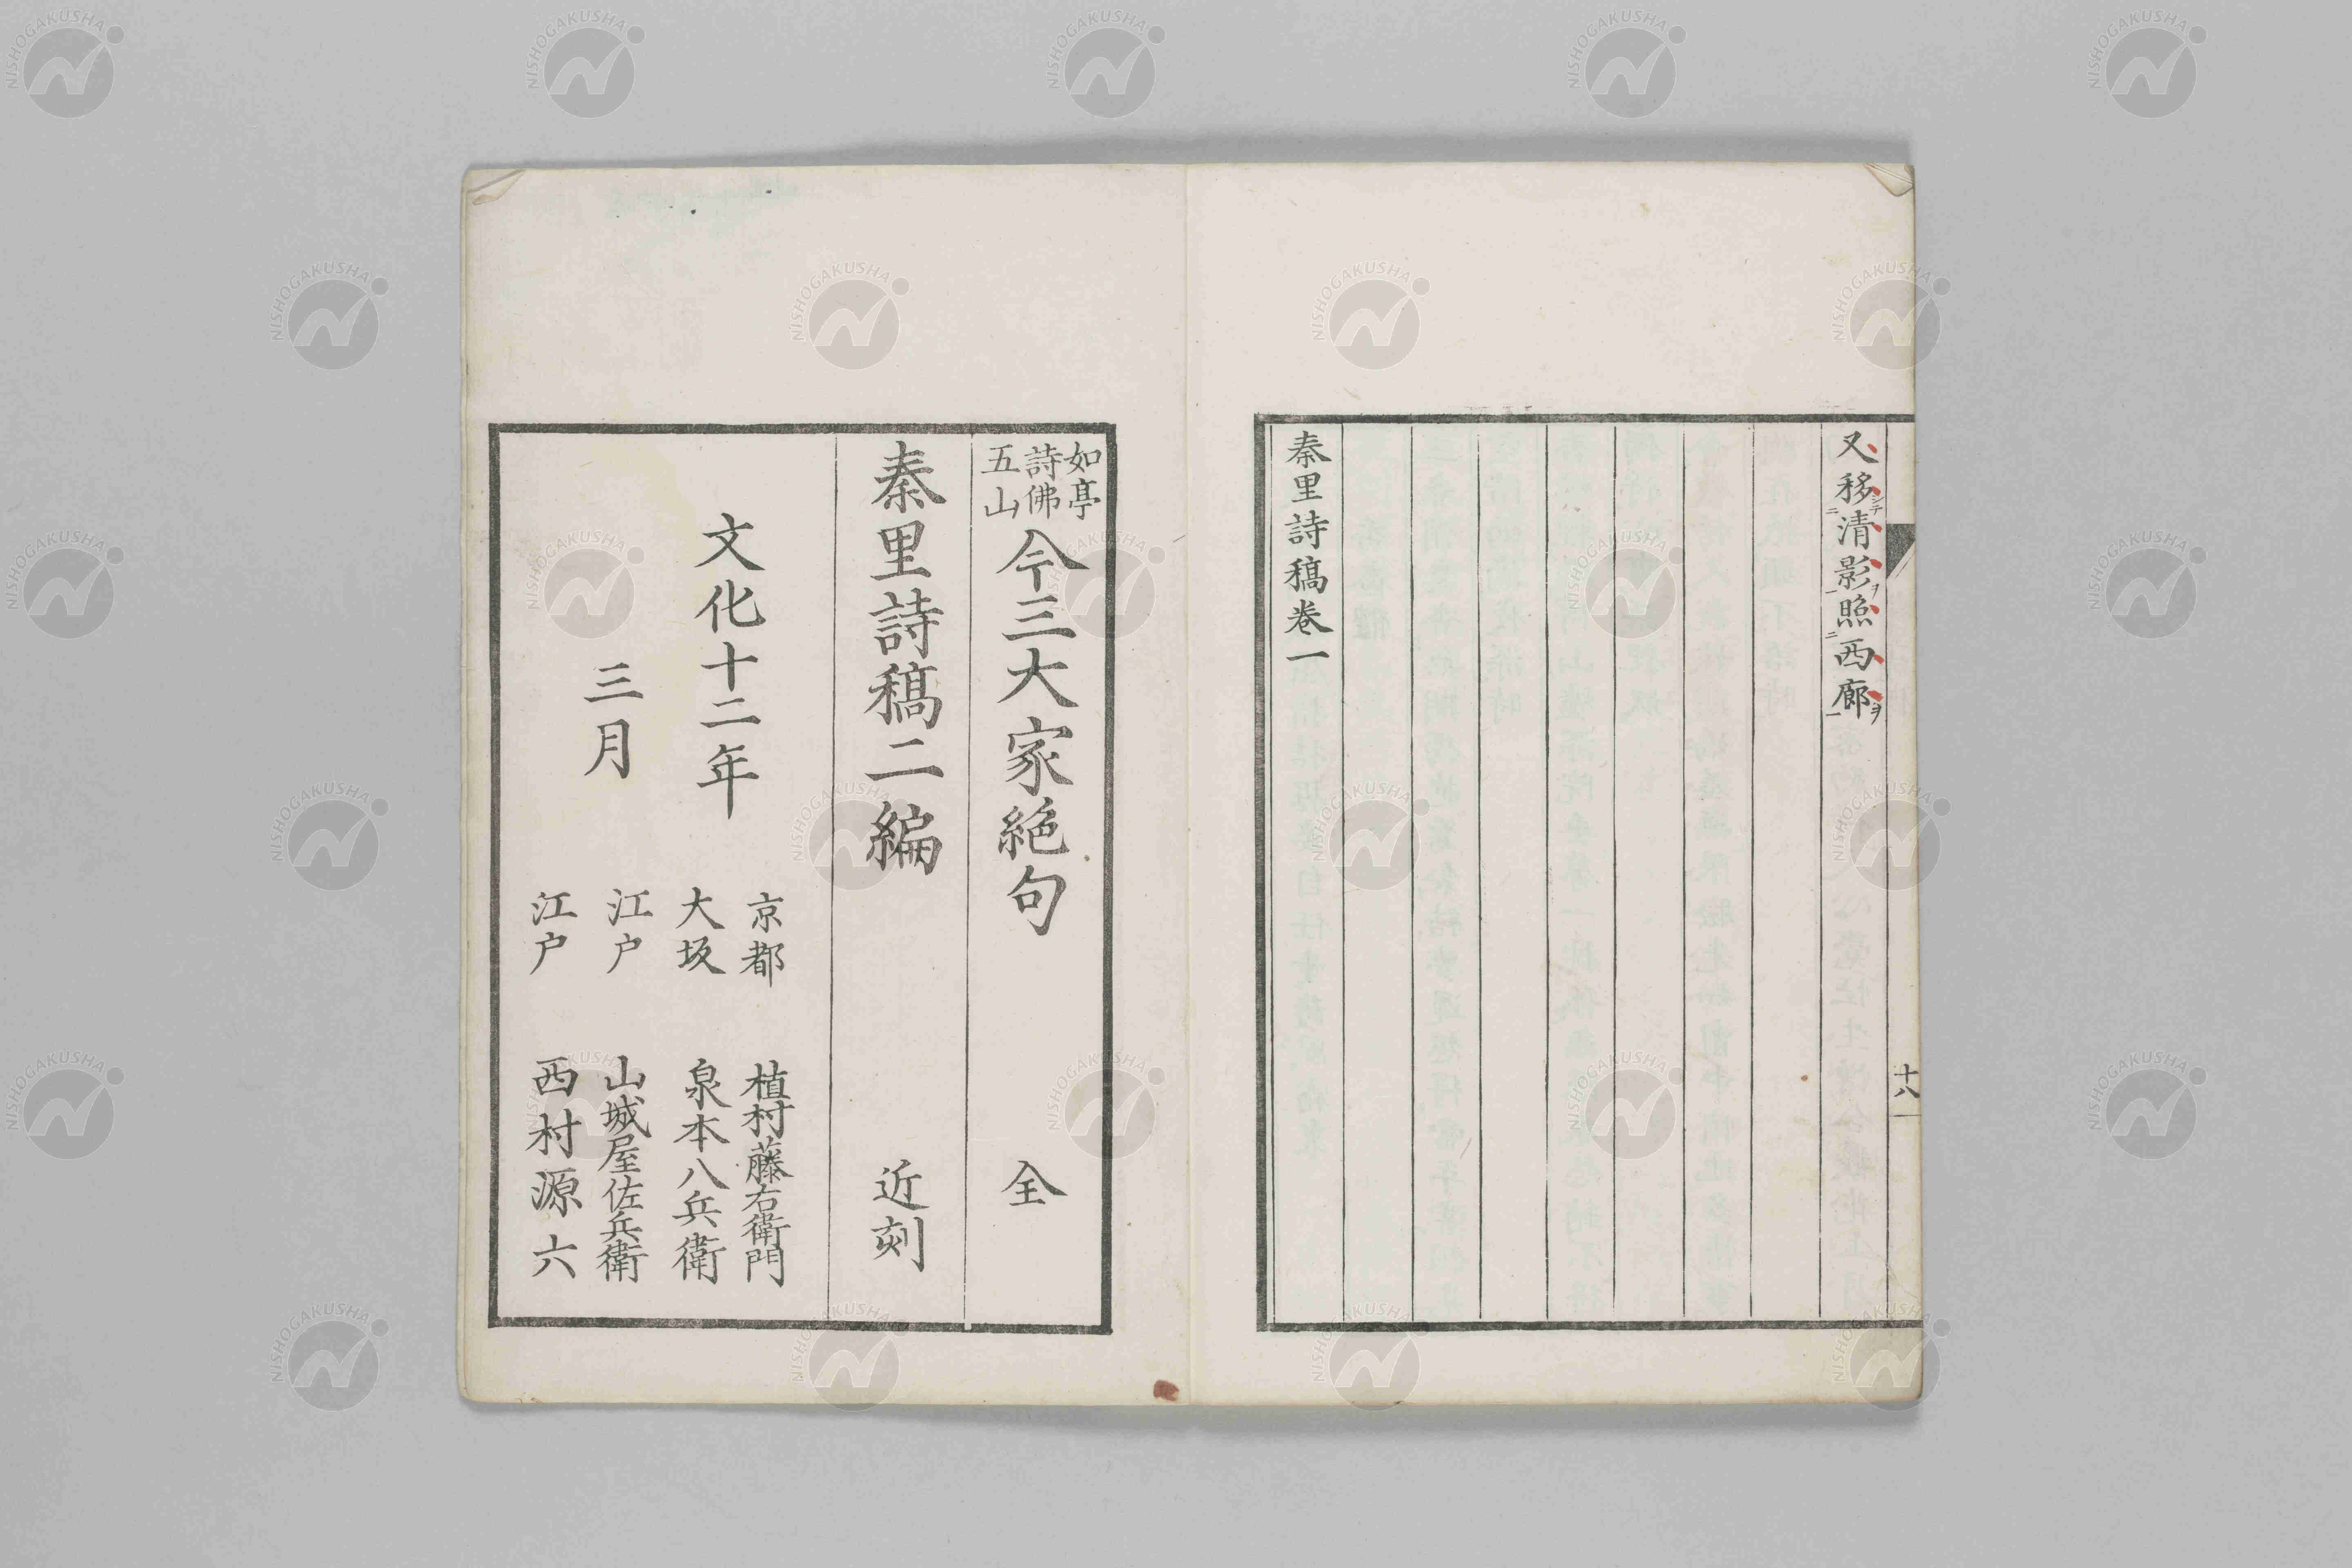 又移清影照西廊
十八
秦里詩稿巻一
如亭
詩佛
五山
今三大家絶句 全
秦里詩稿二編 近刻
文化十二年
三月
京都 植村藤右衛門
大坂 泉本八兵衛
江戸 山城屋佐兵衛
江戸 西村源六
NISHOGAKUSHA